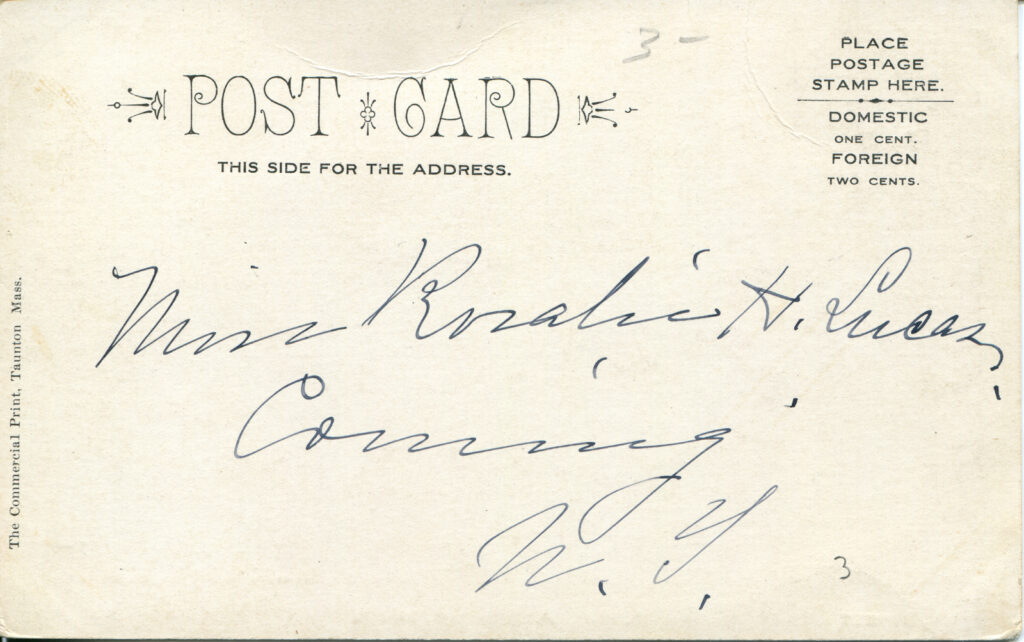 3 -
PLACE
POSTAGE
STAMP HERE.
DOMESTIC
ONE CENT.
FOREIGN
TWO CENTS.
POST CARD
THIS SIDE FOR THE ADDRESS.
Miss Rosalie H. Lucas,
Corning,
N. Y.
3
The Commercial Print, Taunton Mass.